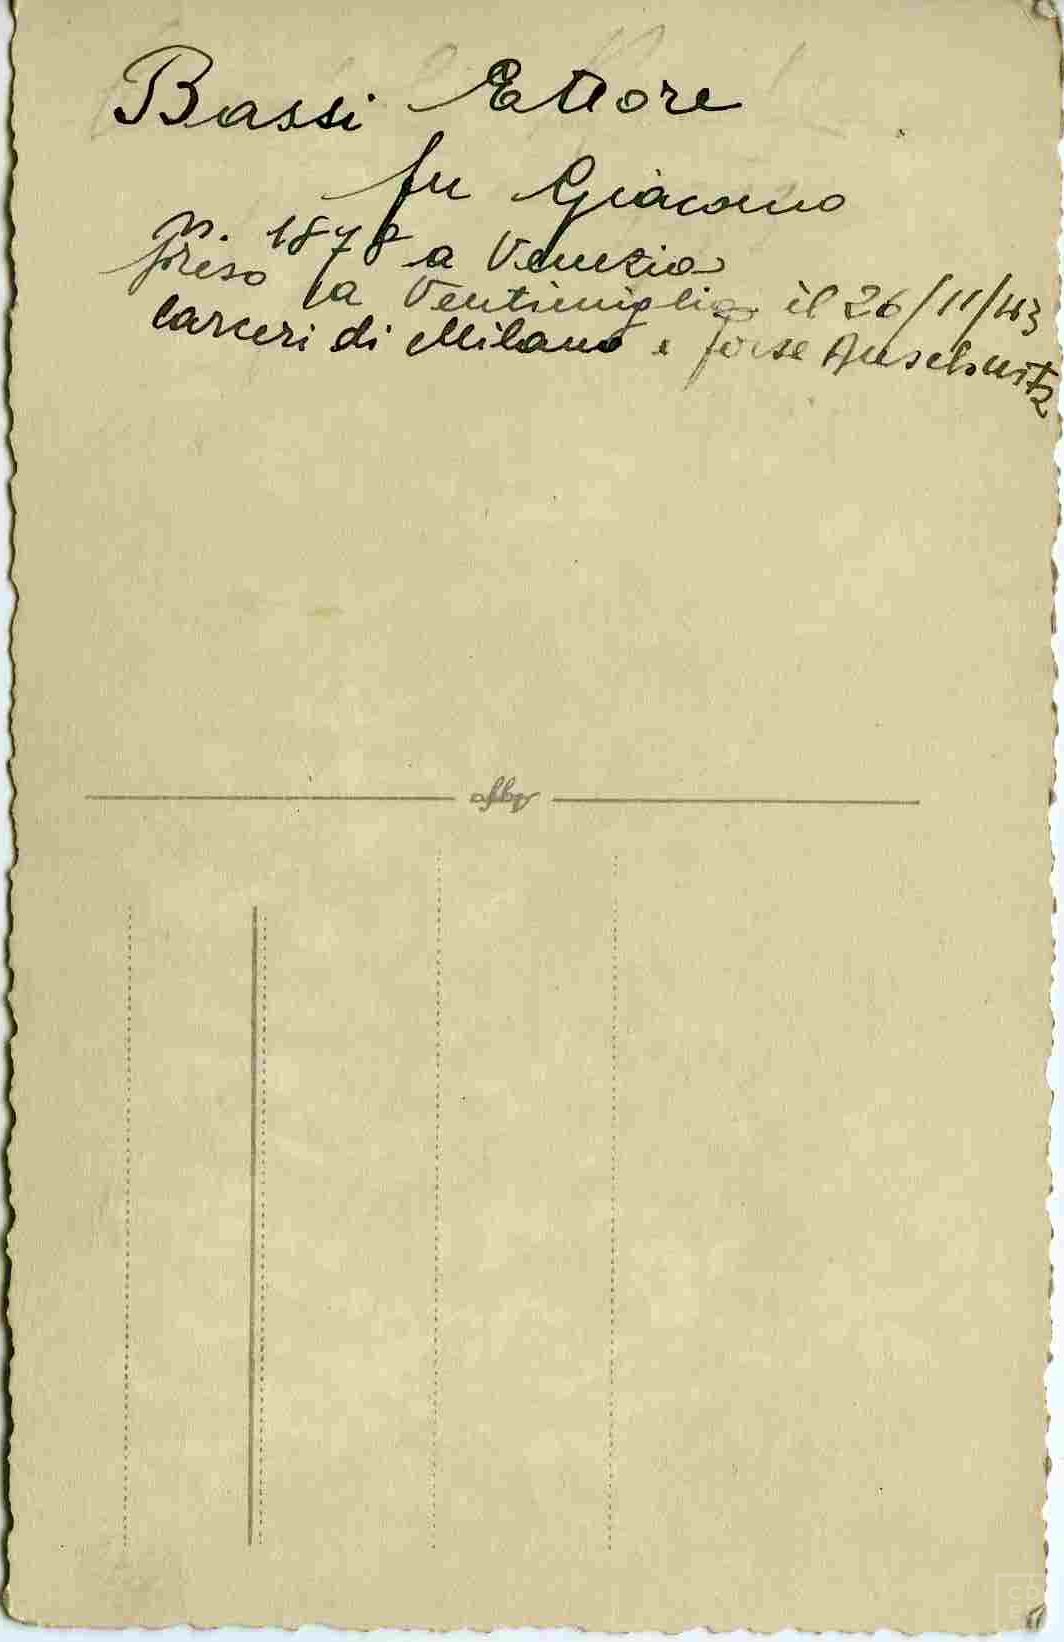 Bassi Ettore
fu Giacomo
n. 1878 a Venezia
preso a Ventimiglia il 26/11/43
Carceri di Milano e forse Auschwitz
CD
E